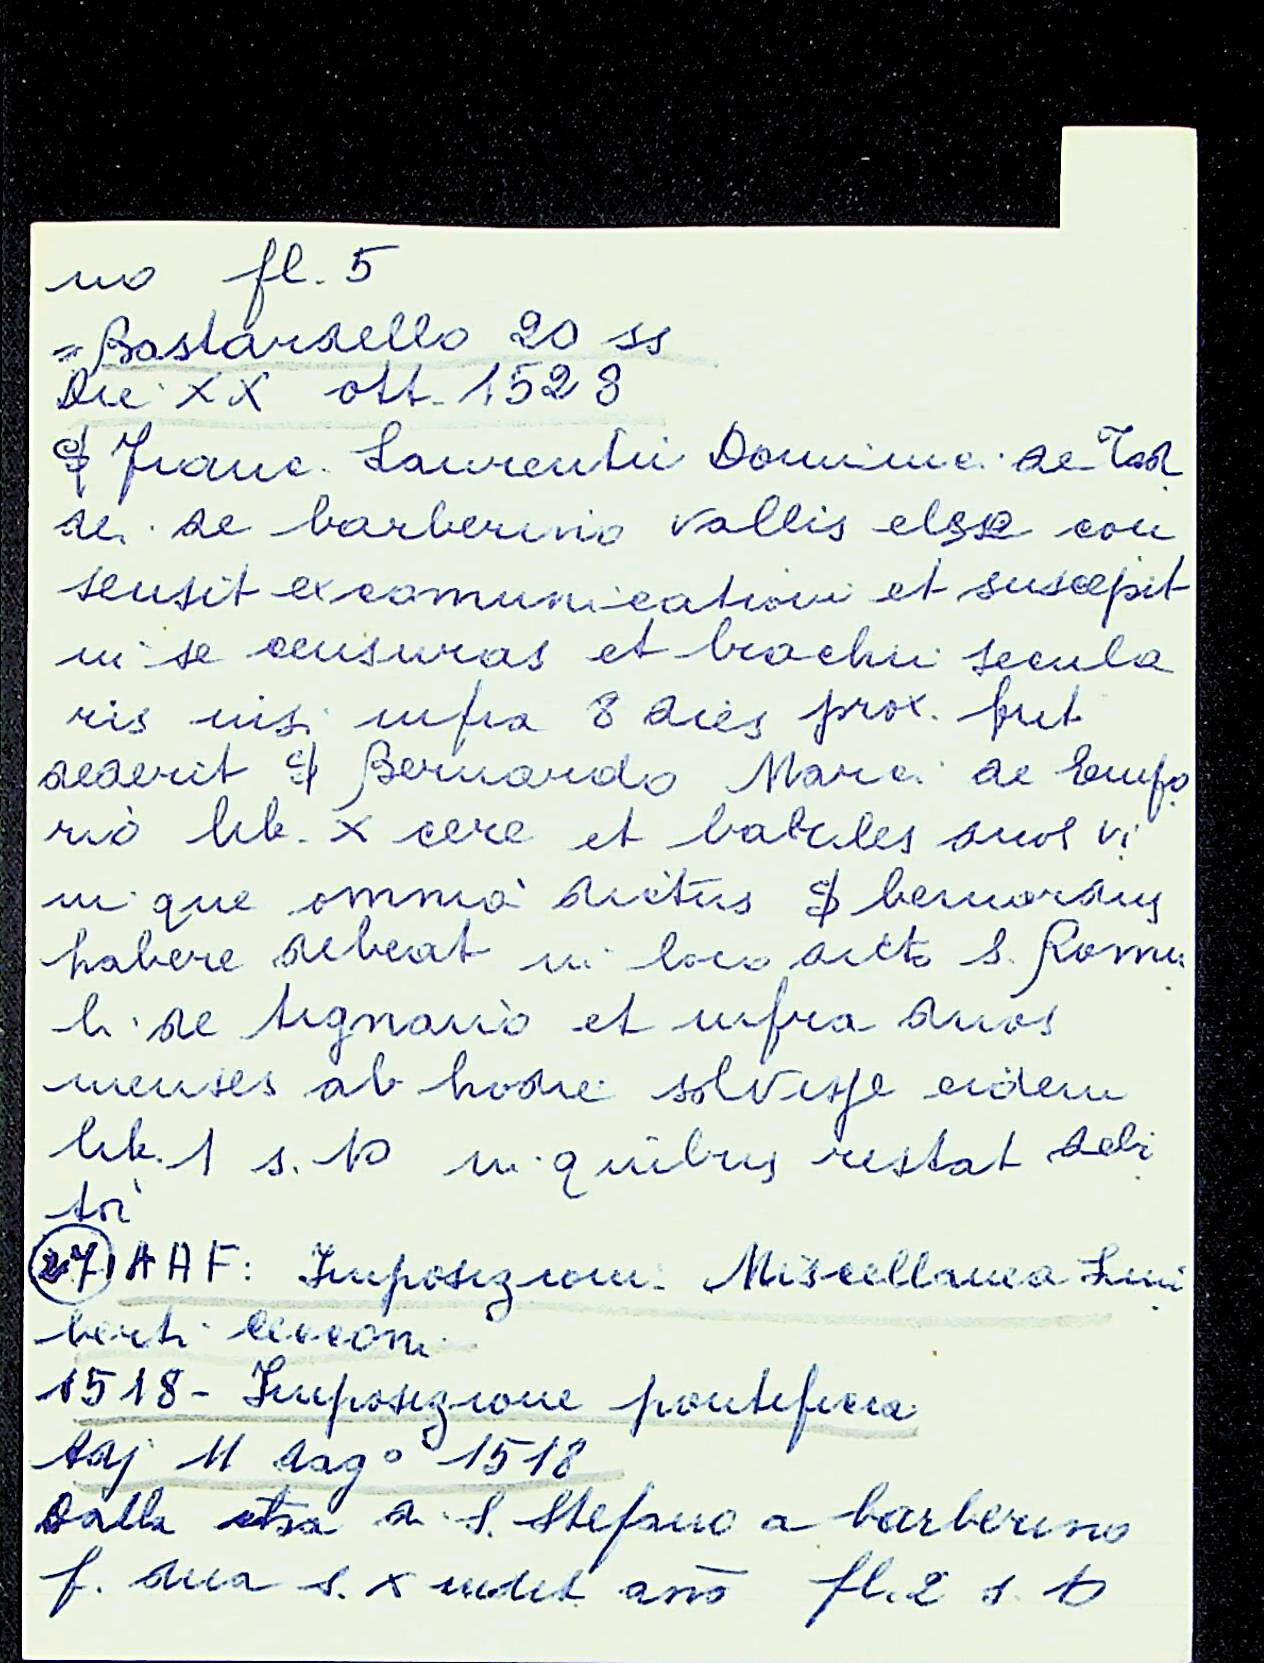 no fl. 5
= Bastardello 20 ss
Die XX ott. 1528
Franc. Laurentii Dominici de Tad
dei de barberino vallis else con
sensit excomunicationi et suscepit
in se censuras et brachii secula
ris nisi infra 8 dies prox.
dederit Bernardo Marci de Empo
rio lib. X cere et batiles duos vi
ni que omnia dictus bernardus
habere debeat in loco dicto S. Romu
li de tignano et infra duos
menses ab hodie solvisse eidem
lib. 1 s. 10 in quibus restat debi
tor
27) AAF: Imposizioni Miscellanea Lim
berti Cecconi
1518 - Imposizione pontificia
Adj 11 dago 1518
Dalla di S. Stefano a barberino
f. dua s. X anō fl. 2 s. 10